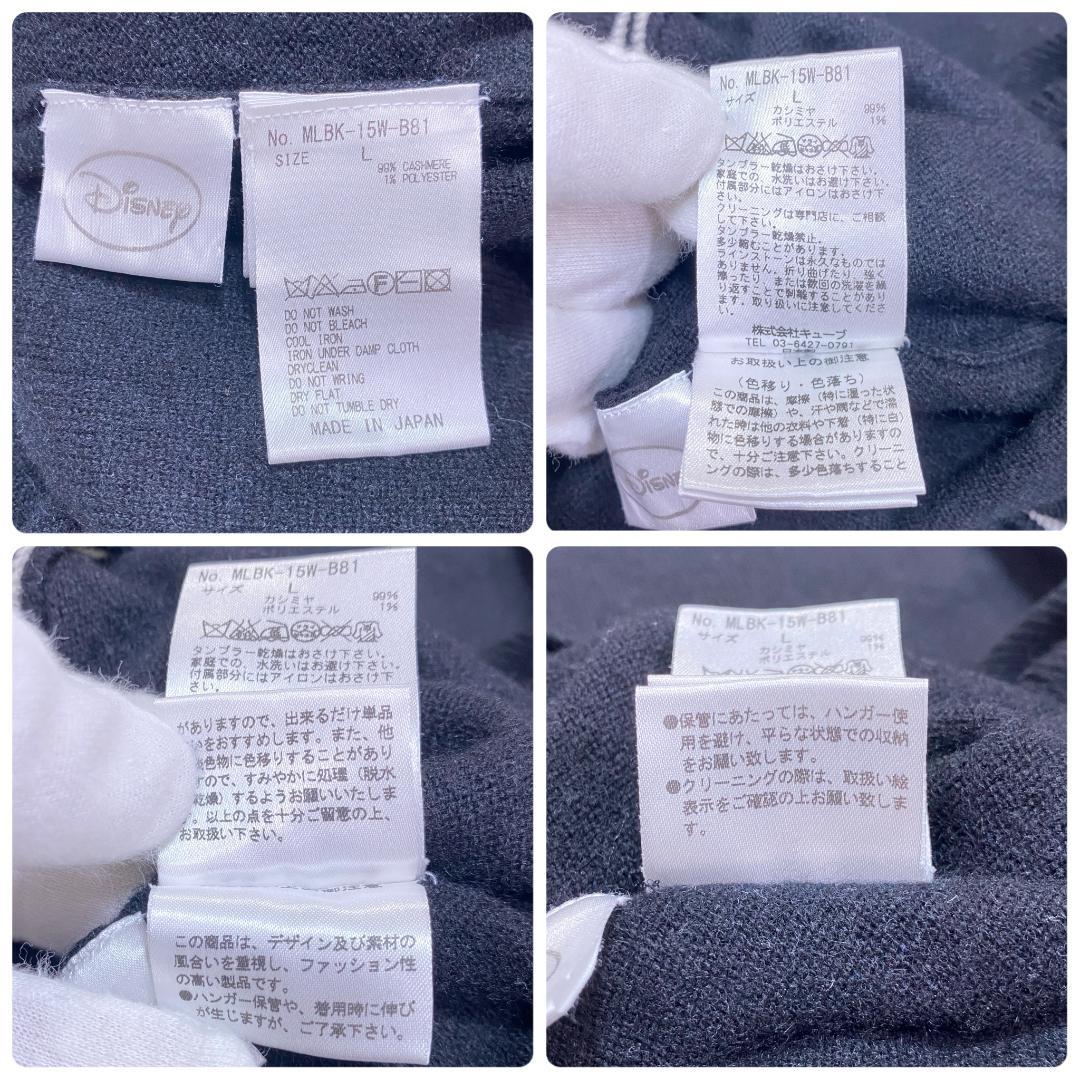 Disney
No. MLBK-15W-B81
SIZE L
99% CASHMERE
1% POLYESTER
F
DO NOT WASH
DO NOT BLEACH
COOL IRON
IRON UNDER DAMP CLOTH
DRYCLEAN
DO NOT WRING
DRY FLAT
DO NOT TUMBLE DRY
MADE IN JAPAN
No. MLBK-15W-B81
サイズ L
カシミヤ 99%
ポリエステル 1%
タンブラー乾燥はおさけ下さい。
家庭での、水洗いはお避け下さい。
付属部分にはアイロンはおさけ下
さい。
クリーニングは専門店に、ご相談
して下さい。
タンブラー乾燥禁止。
多少縮むことがあります。
ラインストーンは永久なものでは
ありません。折り曲げたり、強く
擦ったり、または数回の洗濯を繰
り返すことで剥離することがあり
ます。取り扱いに注意してくださ
い。
株式会社キューブ
TEL 03-6427-0791
日本製
お取扱い上の御注意
(色移り・色落ち)
この商品は、摩擦(特に湿った状
態での摩擦)や、汗や雨などで濡
れた時は他の衣料や下着(特に白)
物に色移りする場合がありますの
で、十分ご注意下さい。クリーニ
ングの際は、多少色落ちすること
Disney
No. MLBK-15W-B81
サイズ L
カシミヤ 99%
ポリエステル 1%
タンブラー乾燥はおさけ下さい。
家庭での、水洗いはお避け下さい。
付属部分にはアイロンはおさけ下
さい。
がありますので、出来るだけ単品
いをおすすめします。また、他
色物に色移りすることがあり
ので、すみやかに処理(脱水
乾燥)するようお願いいたしま
す。以上の点を十分ご留意の上、
お取扱い下さい。
この商品は、デザイン及び素材の
風合いを重視し、ファッション性
の高い製品です。
●ハンガー保管や、着用時に伸び
が生じますが、ご了承下さい。
No. MLBK-15W-B81
サイズ L
カシミヤ 99%
ポリエステル 1%
●保管にあたっては、ハンガー使
用を避け、平らな状態での収納
をお願い致します。
●クリーニングの際は、取扱い絵
表示をご確認の上お願い致しま
す。